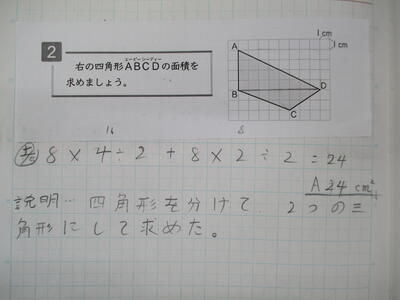 1cm
1cm
2
エービーシーディー
右の四角形ABCDの面積を
求めましょう。
A
B
D
C
16
8
8×4÷2+8×2÷2=24
A 24cm²
説明…四角形を分けて 2つの三
角形にして求めた。